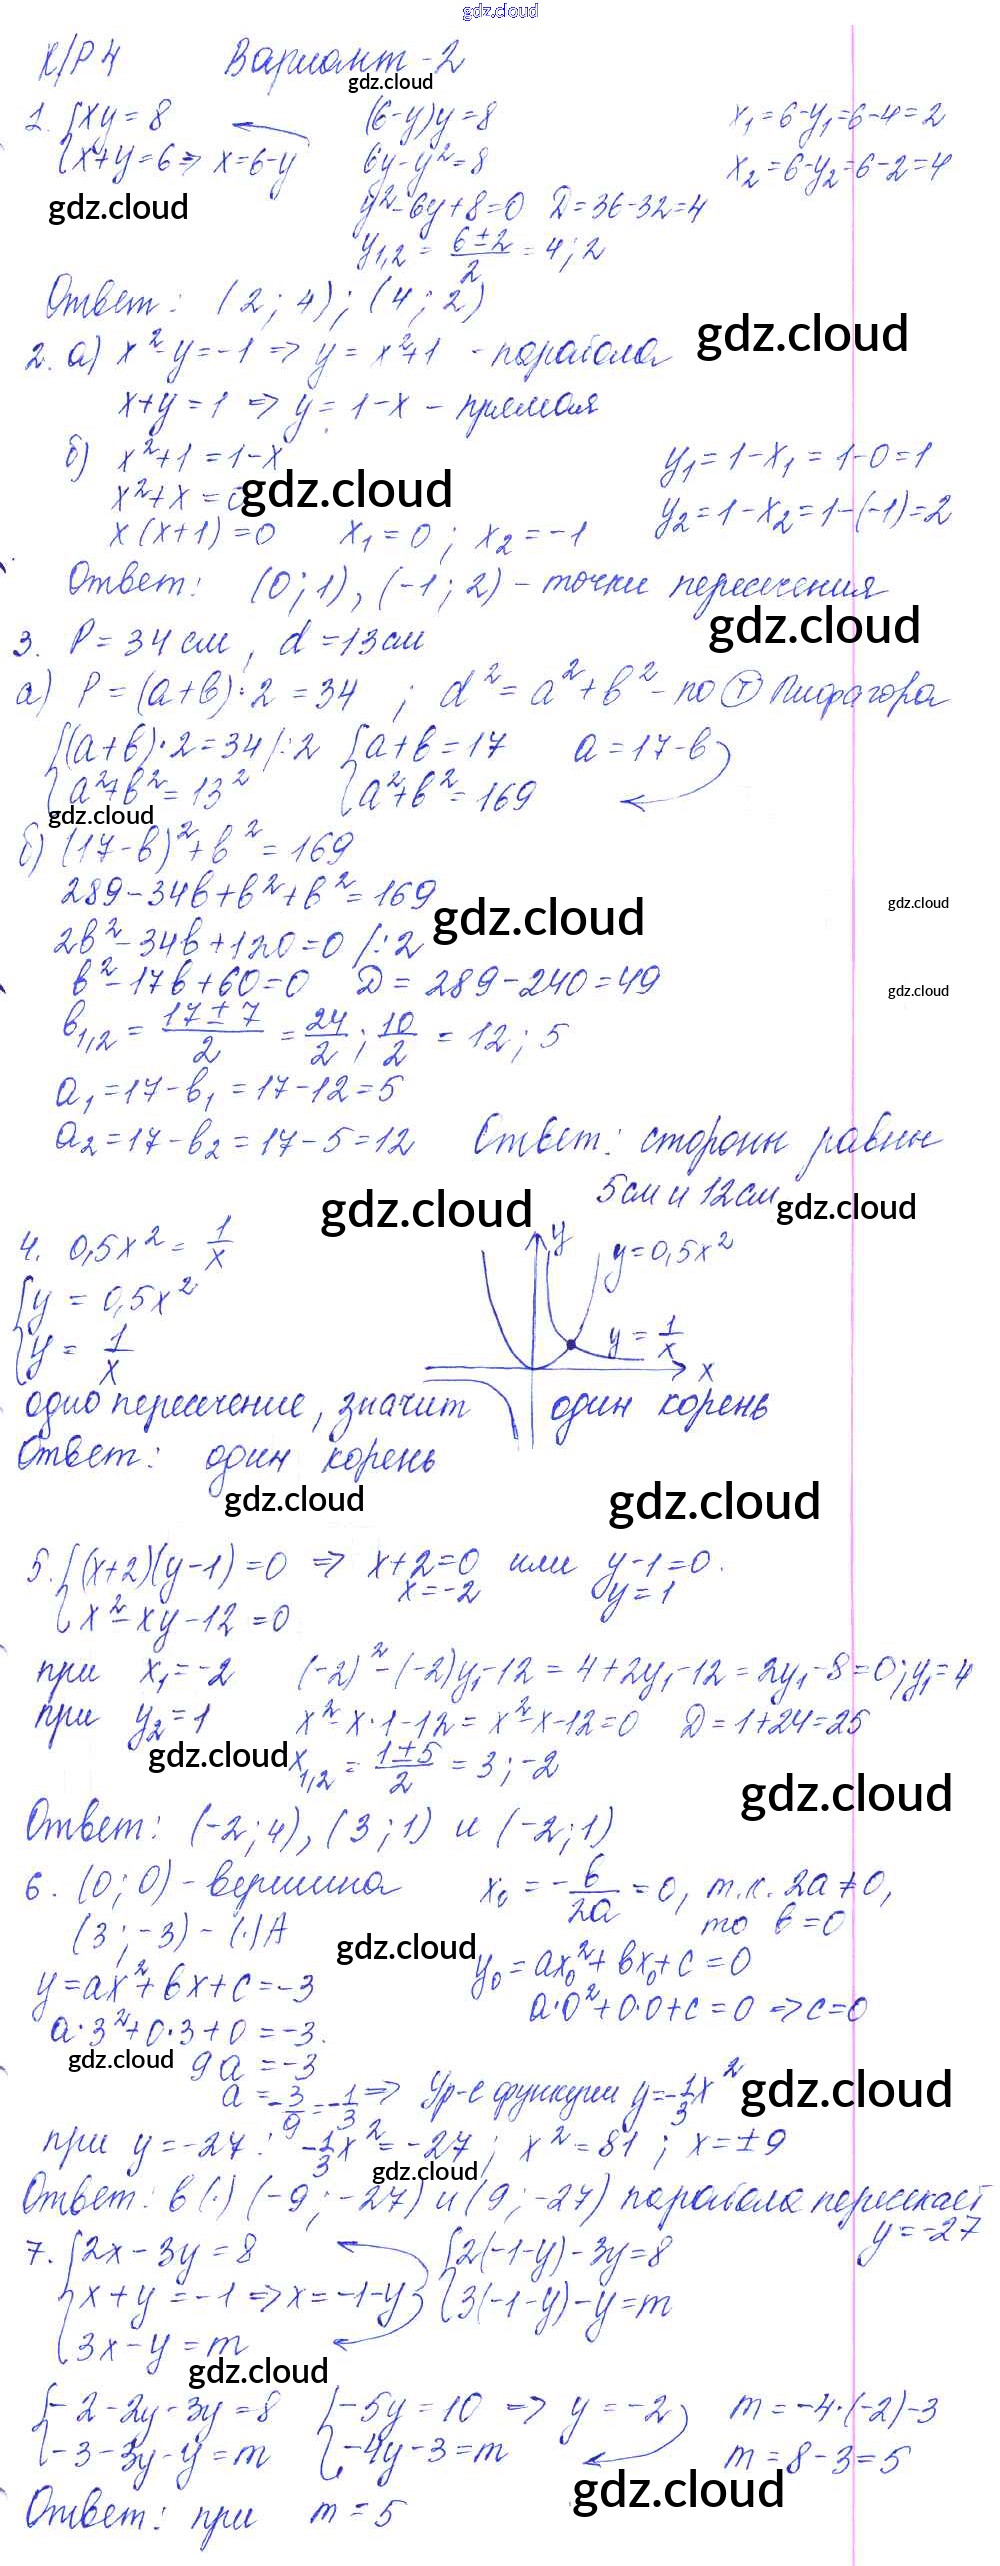 gdz.cloud
К/Р 4 Вариант-2
gdz.cloud
1. {xy = 8 (6-y)y=8 x₁=6-y₁=6-4=2
{x+y=6 => x=6-y 6y-y²=8 x₂=6-y₂=6-2=4
gdz.cloud
y²-6y+8=0 D=36-32=4
y₁,₂ = (6±2)/2 = 4; 2
Ответ: (2; 4); (4; 2)
gdz.cloud
2. а) x²-y=-1 => y= x²+1 - парабола
x+y=1 => y=1-x - прямая
б) x²+1=1-x y₁=1-x₁=1-0=1
x²+x=0 y₂=1-x₂=1-(-1)=2
gdz.cloud
x(x+1)=0 x₁=0; x₂=-1
Ответ: (0;1), (-1; 2) - точки пересечения
gdz.cloud
3. P=34 см, d=13 см
а) P=(a+b)·2=34; d²=a²+b² - по (т) Пифагора
{(a+b)·2=34 |:2 {a+b=17 a=17-b
{a²+b²=13² {a²+b²=169
gdz.cloud
б) (17-b)²+b²=169
289-34b+b²+b²=169
gdz.cloud
gdz.cloud
2b²-34b+120=0 |:2
b²-17b+60=0 D=289-240=49
gdz.cloud
b₁,₂ = (17±7)/2 = 24/2; 10/2 = 12; 5
a₁=17-b₁=17-12=5
a₂=17-b₂=17-5=12 Ответ: стороны равны
5 см и 12 см
gdz.cloud
gdz.cloud
4. 0,5x² = 1/x
y
y=0,5x²
{y = 0,5x²
{y = 1/x
y = 1/x
x
одно пересечение, значит один корень
Ответ: один корень
gdz.cloud
gdz.cloud
5. {(x+2)(y-1)=0 => x+2=0 или y-1=0.
x=-2 y=1
{x²-xy-12=0
при x₁=-2 (-2)²-(-2)y₁-12=4+2y₁-12=2y₁-8=0; y₁=4
при y₂=1 x²-x·1-12=x²-x-12=0 D=1+24=25
gdz.cloud
x₁,₂ = (1±5)/2 = 3; -2
gdz.cloud
Ответ: (-2; 4), (3; 1) и (-2; 1)
6. (0; 0) - вершина x₀ = -b/2a = 0, т.к. 2a≠0,
то b=0
(3; -3) - (·)A
gdz.cloud
y=ax²+bx+c=-3 y₀=ax₀²+bx₀+c=0
a·0²+0·0+c=0 => c=0
a·3²+0·3+0=-3.
gdz.cloud
9a=-3
gdz.cloud
a=-3/9=-1/3 => Ур-е функции y=-1/3x²
при y=-27: -1/3x²=-27; x²=81; x=±9
gdz.cloud
Ответ: в (·) (-9; -27) и (9; -27) парабола пересекает
y=-27
7. {2x-3y=8 {2(-1-y)-3y=8
{x+y=-1 => x=-1-y {3(-1-y)-y=m
{3x-y=m
gdz.cloud
{-2-2y-3y=8 {-5y=10 => y=-2 m=-4·(-2)-3
{-3-3y-y=m {-4y-3=m m=8-3=5
gdz.cloud
Ответ: при m=5